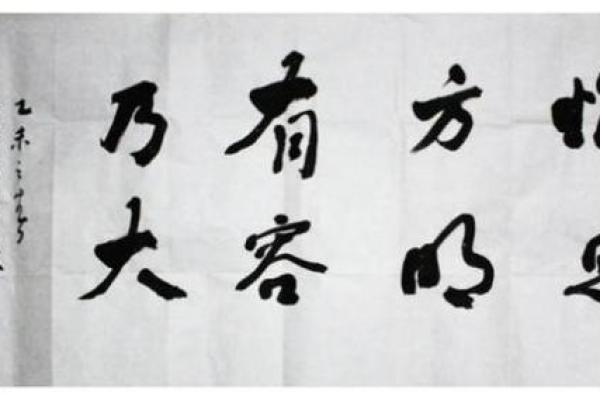 方明
有容
乃大
乙未之春